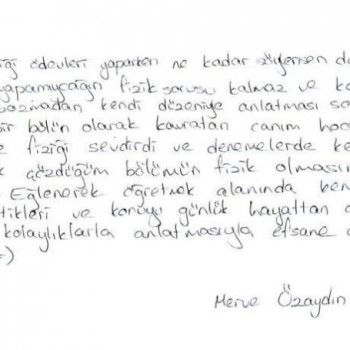 ödevleri yaparken ne kadar söylersen
fizik sorusu kalmaz ve
bozmadan kendi düzeniyle anlatması
bir bölün olarak kavratan canım
fiziği sevdirdi ve denemelerde
çözdüğüm bölümün fizik
Eğlenerek öğretmek alanında
ve konuyu günlük hayattan
kolaylıklarla anlatmasıyla efsane
=)
Merve Özaydın